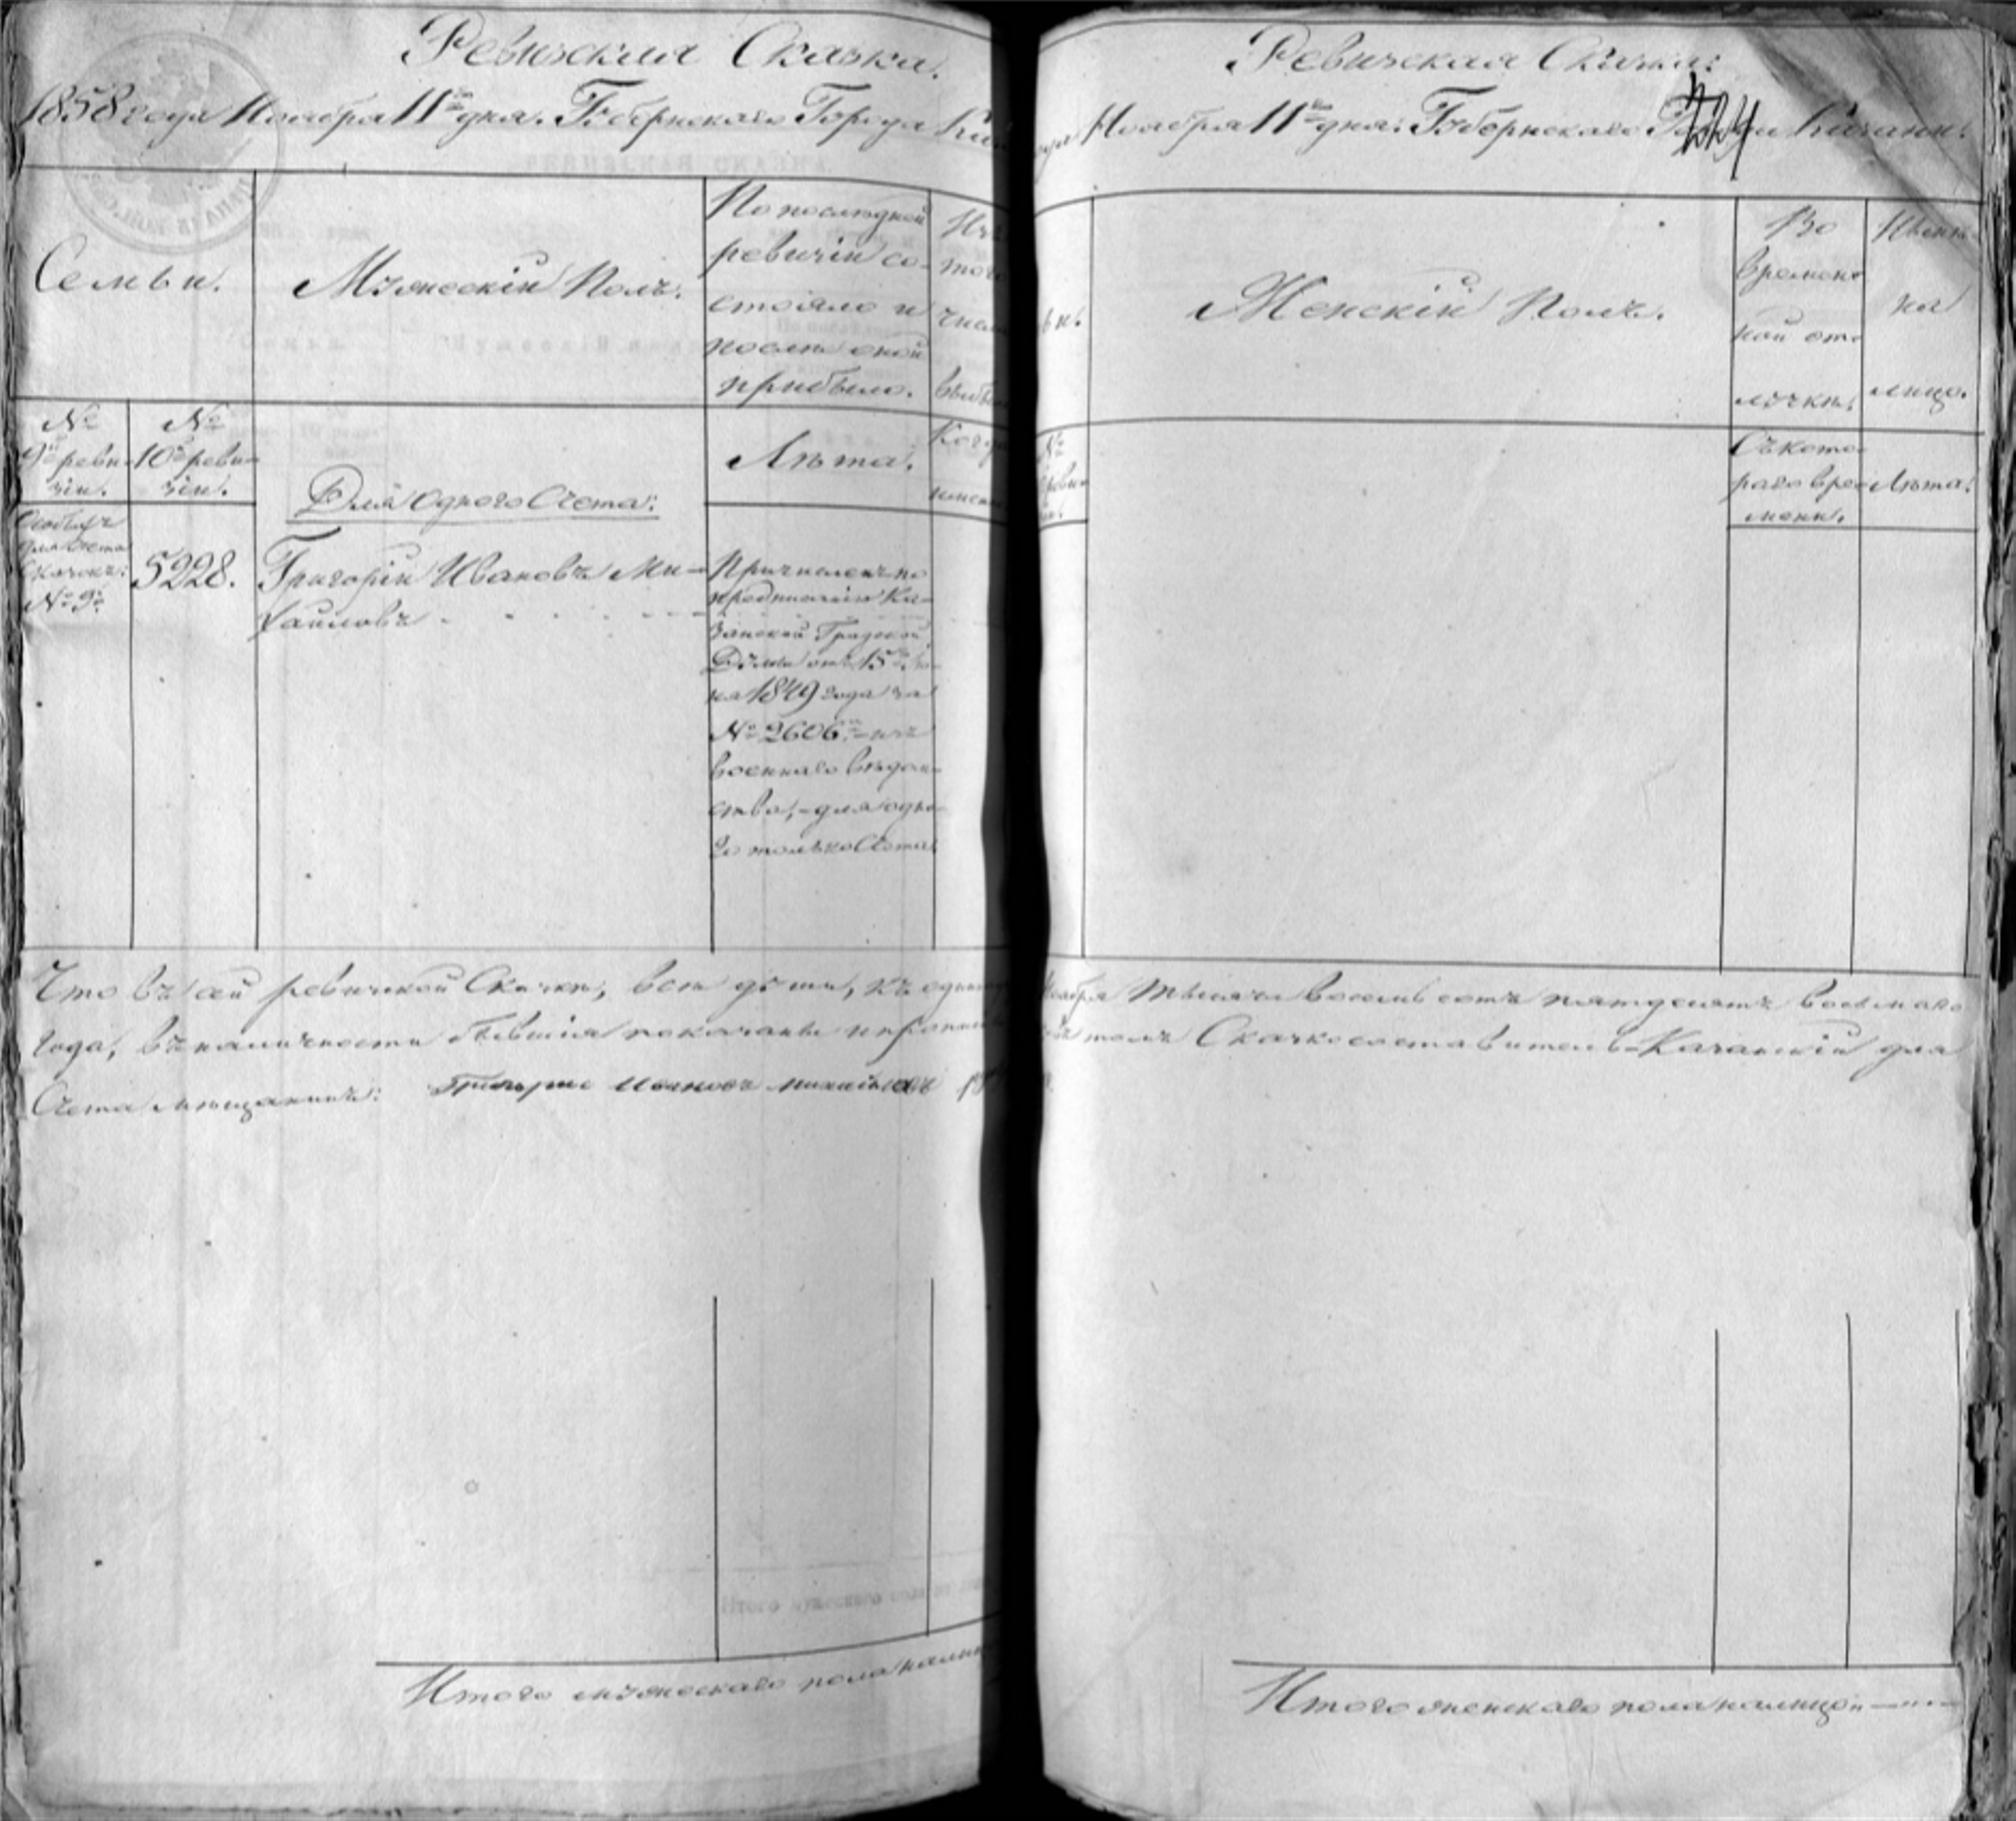 Ревизская Сказка.
1858 года Ноября 11го дня. Губернскаго Города
Семьи.
Мужескій Полъ.
По послѣдней
ревизіи со-
стояло и
послѣ оной
прибыло.
Изъ
того
числа
выбы
№
9й реви-
зіи.
№
10й реви-
зіи.
Для одного Счета:
Лѣта.
Когда
имен
для счета
№ 9й
5228.
Григорій Ивановъ Ми-
хайловъ
Причисленъ по
предписанію Ка-
занской Градской
Думы отъ 15го
1849 года за
№ 2606м изъ
военнаго вѣдом-
ства, - для одно-
го только Счета.
Что въ сей ревизской Сказкѣ, всѣ души, къ
года, въ наличности бывшія показаны и
Счета мѣщанинъ: Григорие Ивановъ Михайловъ
Итого мужескаго пола
Ревизская Сказка:
Ноября 11го дня: Губернскаго Города Казани.
224
ьи.
Женскій Полъ.
Во
времен-
ной от-
лучкѣ.
Нынѣ
на
лицо.
№
реви-
Съ кото-
раго вре-
мени.
Лѣта.
Ноября тысяча восемь сотъ пятдесятъ восьмаго
томъ Сказкосоставитель Казанскій для
Итого женскаго пола на лицо „ — „